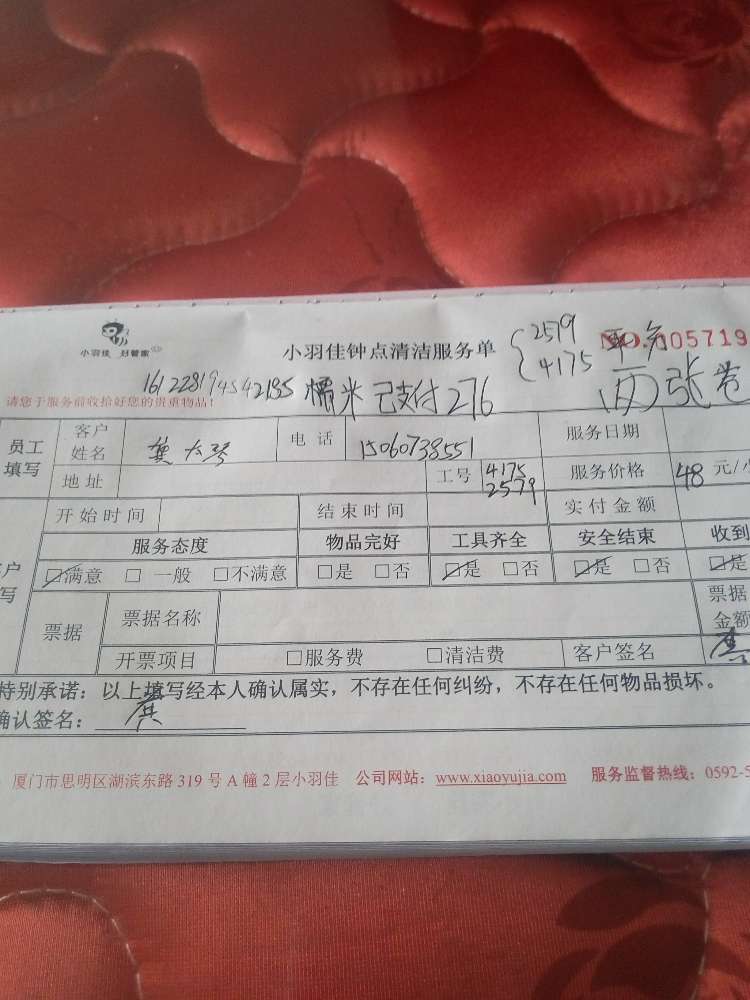 小羽佳 好管家
小羽佳钟点清洁服务单
2519
4175
NO.005719
两张卷
请您于服务前收拾好您的贵重物品!
糯米 已支付 276
员工填写
客户姓名 龚
电话 15060738551
服务日期
地址
工号 4175 2579
服务价格 48 元/
开始时间
结束时间
实付金额
服务态度
物品完好
工具齐全
安全结束
收到
户
写
满意 一般 不满意
是 否
是 否
是 否
是
票据
票据名称
票据
金额
开票项目
服务费 清洁费
客户签名
特别承诺:以上填写经本人确认属实,不存在任何纠纷,不存在任何物品损坏。
确认签名:
厦门市思明区湖滨东路 319 号 A 幢 2 层小羽佳 公司网站:www.xiaoyujia.com 服务监督热线:0592-5